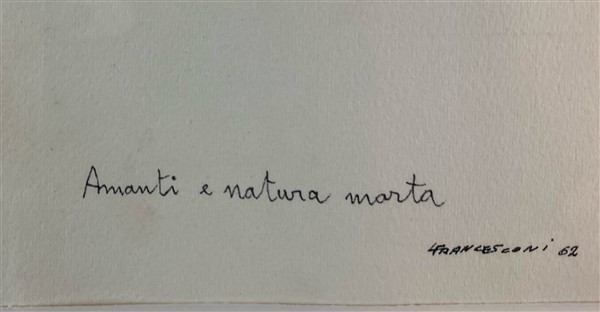 Amanti e natura marta
LFRANCESCONI 62